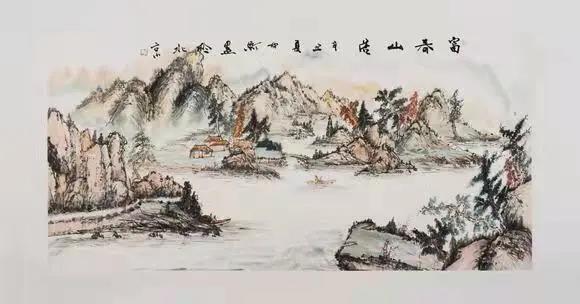 富春山居 辛丑夏 畫於北京